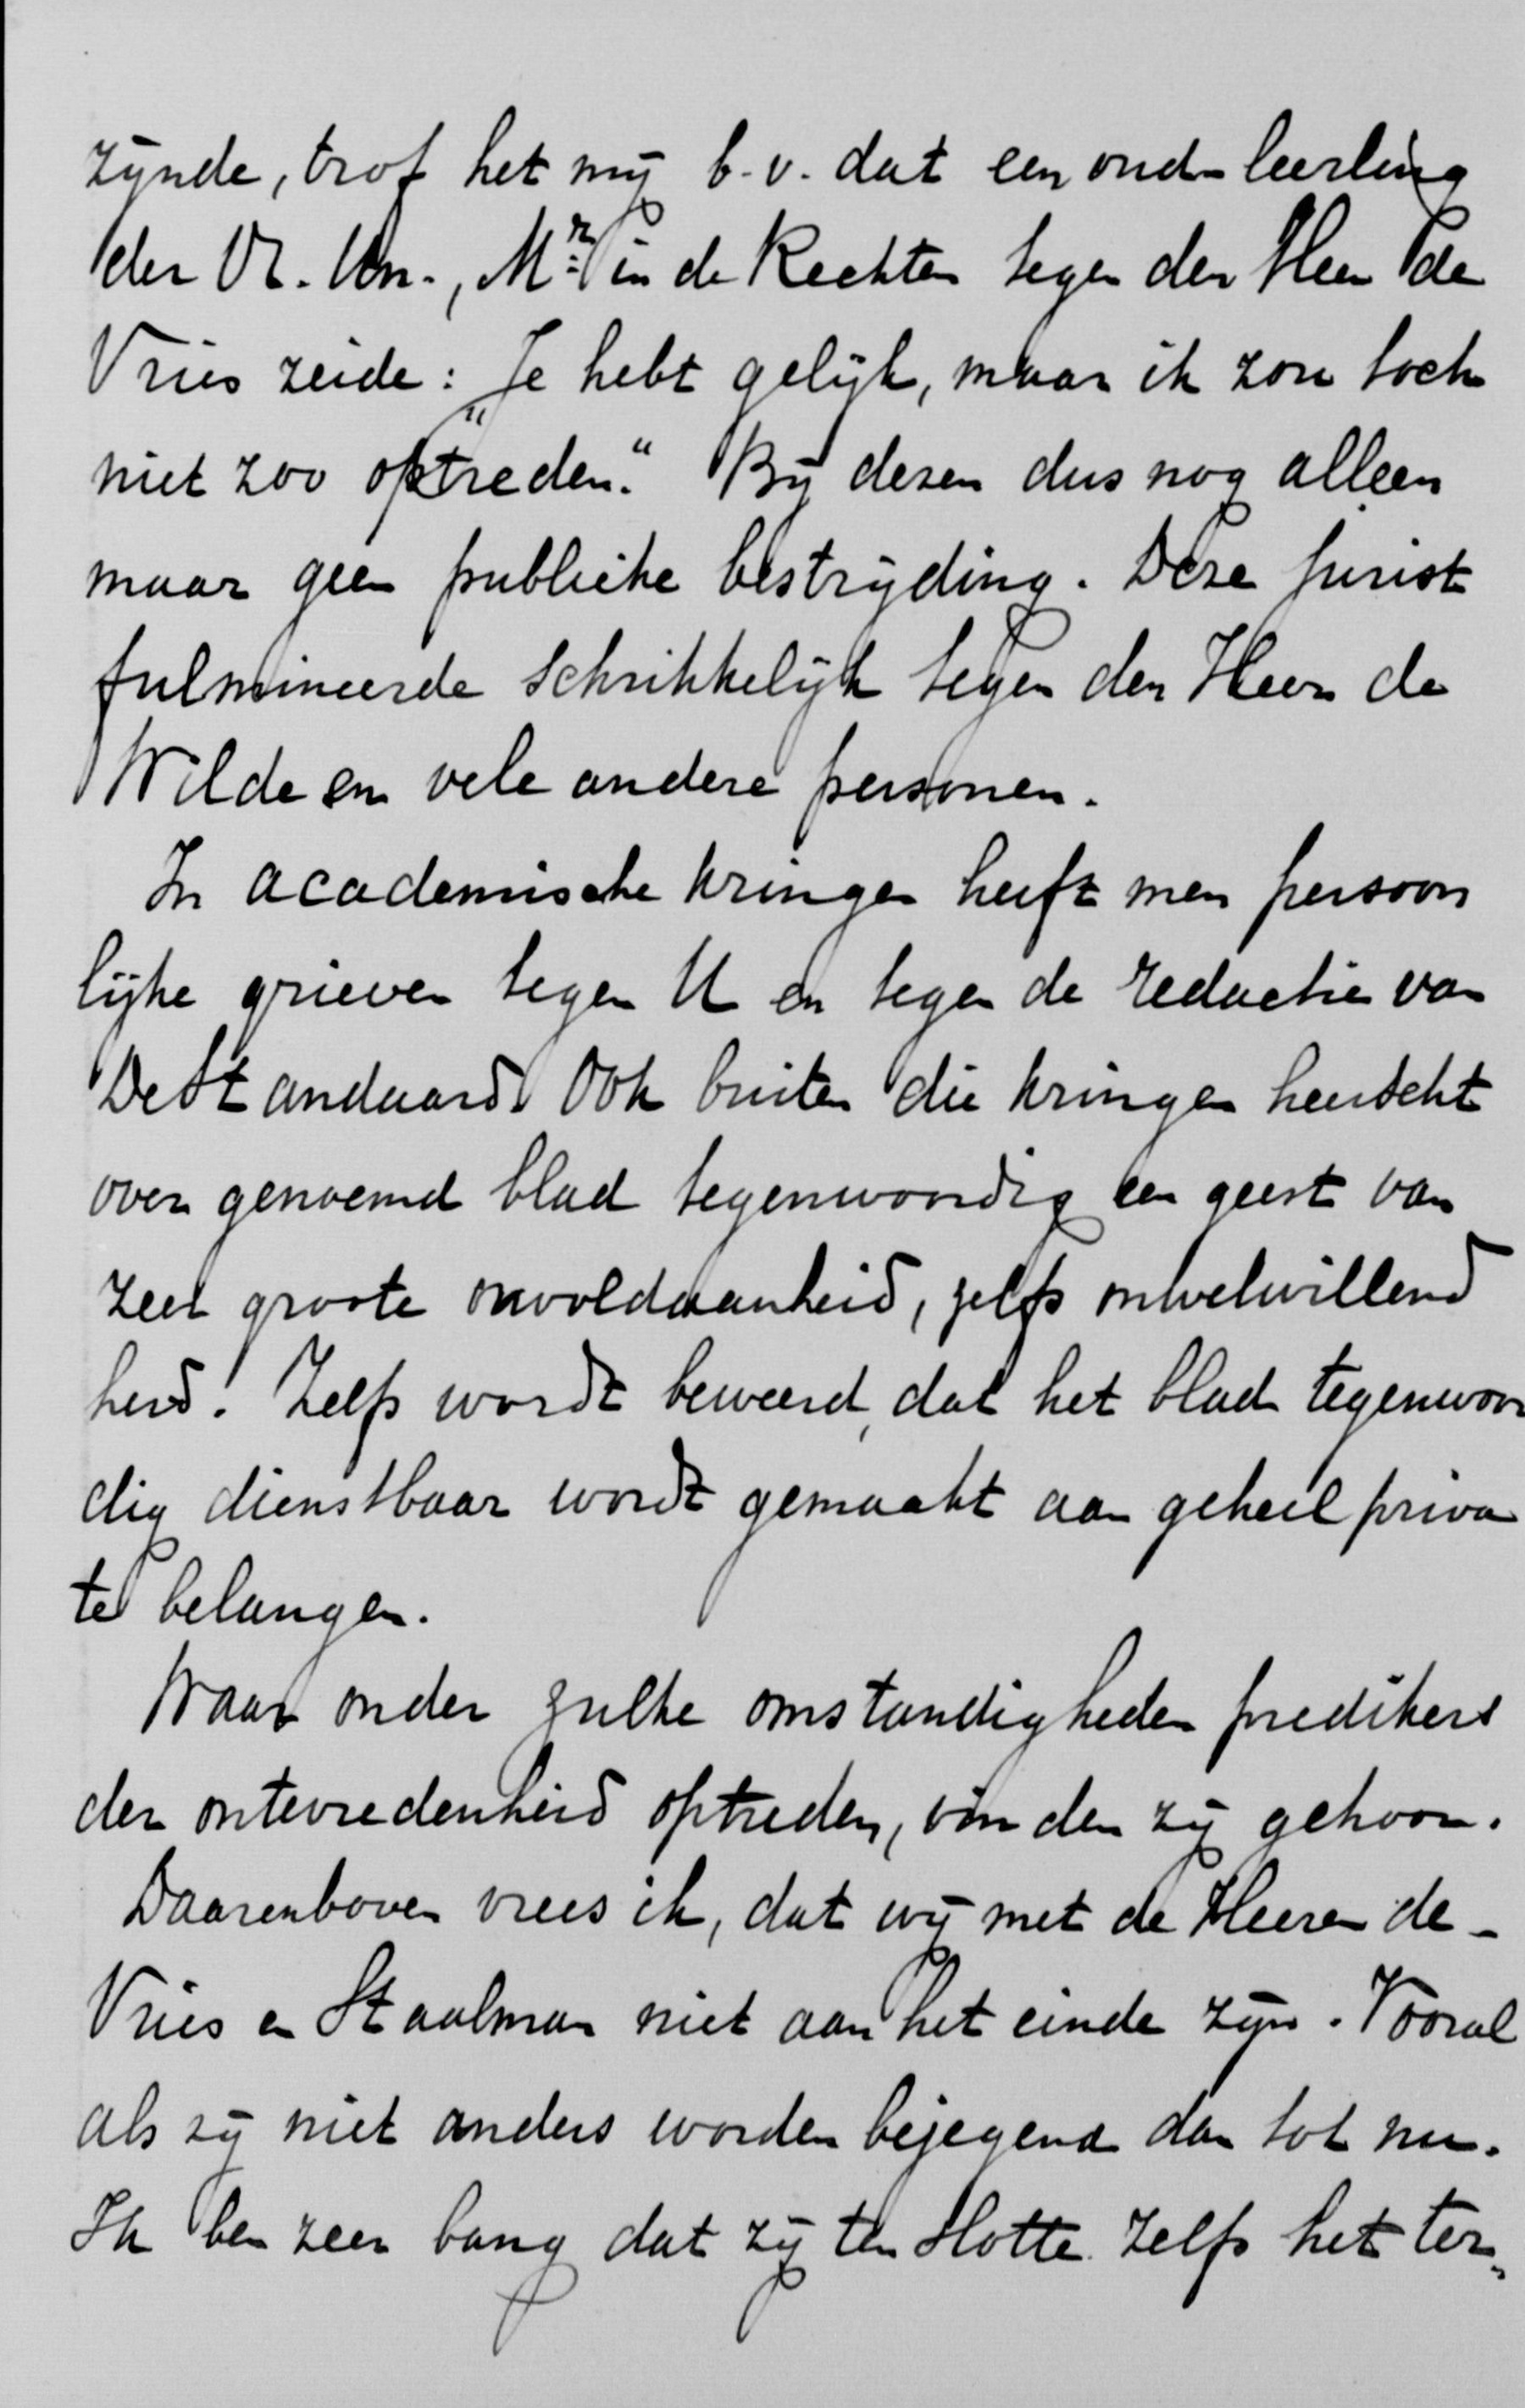 zijnde, trof het mij b.v. dat een oud-leerling
der Vr. Un., Mr. in de Rechten tegen den Heer de
Vries zeide: „Je hebt gelijk, maar ik zou toch
niet zoo optreden." Bij dezen dus nog alleen
maar geen publieke bestrijding. Deze jurist
fulmineerde schrikkelijk tegen den Heer de
Wilde en vele andere personen.
In academische kringen heeft men persoon
lijke grieven tegen U en tegen de redactie van
De Standaard. Ook buiten die kringen heerscht
over genoemd blad tegenwoordig een geest van
zeer groote onvoldaanheid, zelfs onwelwillend
heid. Zelfs wordt beweerd, dat het blad tegenwoor
dig dienstbaar wordt gemaakt aan geheel priva
te belangen.
Waar onder zulke omstandigheden predikers
der ontevredenheid optreden, vinden zij gehoor.
Daarenboven vrees ik, dat wij met de Heeren de-
Vries en Staalman niet aan het einde zijn. Vooral
als zij niet anders worden bejegend dan tot nu.
Ik ben zeer bang dat zij ten slotte zelfs het ter-